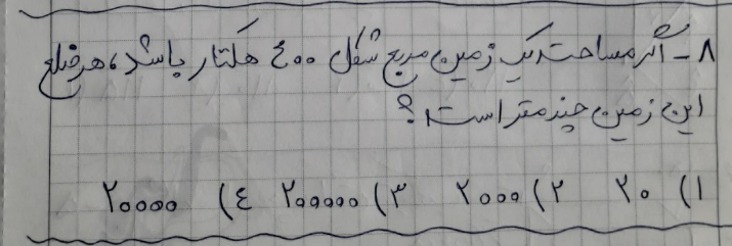 ۸ - اگر مساحت یک زمین مربع شکل ۴۰۰ هکتار باشد، هر ضلع
این زمین چند متر است؟
۱) ۲۰ ۲) ۲۰۰۰ ۳) ۲۰۰۰۰۰ ۴) ۲۰۰۰۰